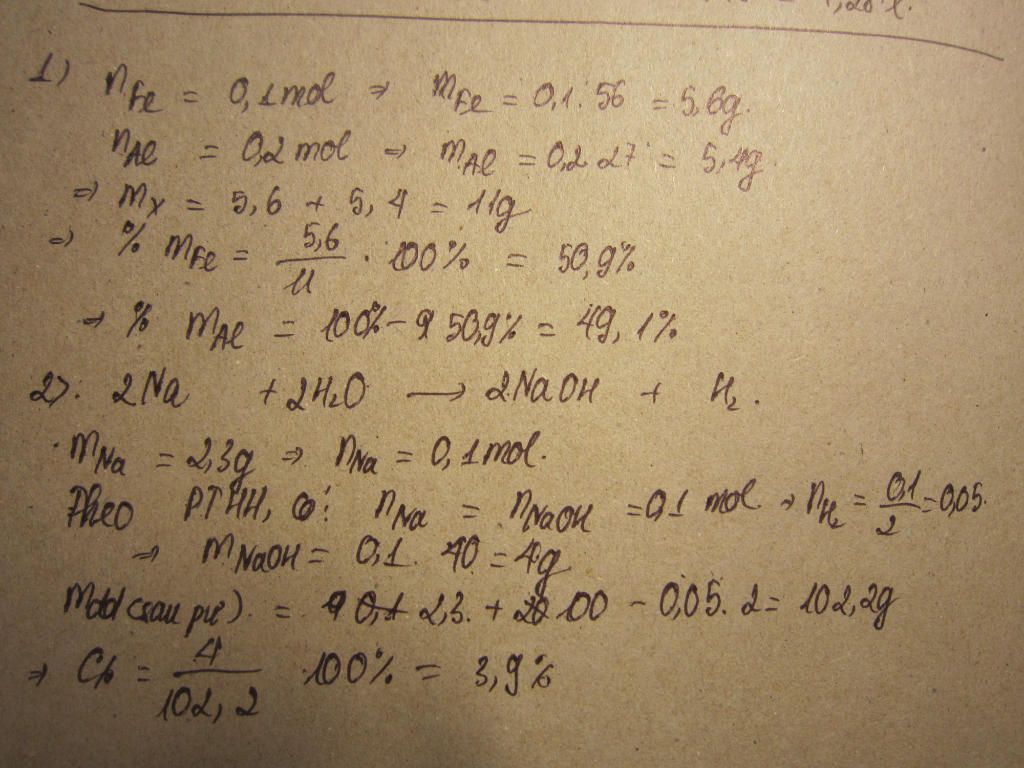 1,28 l.
1) nFe = 0,1mol ⇒ mFe = 0,1. 56 = 5,6g.
nAl = 0,2 mol ⇒ mAl = 0,2 27 = 5,4g
⇒ mX = 5,6 + 5,4 = 11g
⇒ % mFe = 5,6/11 . 100% = 50,9%
⇒ % mAl = 100% - 50,9% = 49,1%
2). 2Na + 2H₂O → 2NaOH + H₂.
. mNa = 2,3g ⇒ nNa = 0,1mol.
Theo PTHH, có: nNa = nNaOH = 0,1 mol ⇒ nH₂ = 0,1/2 = 0,05.
⇒ mNaOH = 0,1. 40 = 4g
mdd(sau pư). = 2,3. + 100 - 0,05. 2 = 102,2g
⇒ C% = 4/102,2 .100% = 3,9%